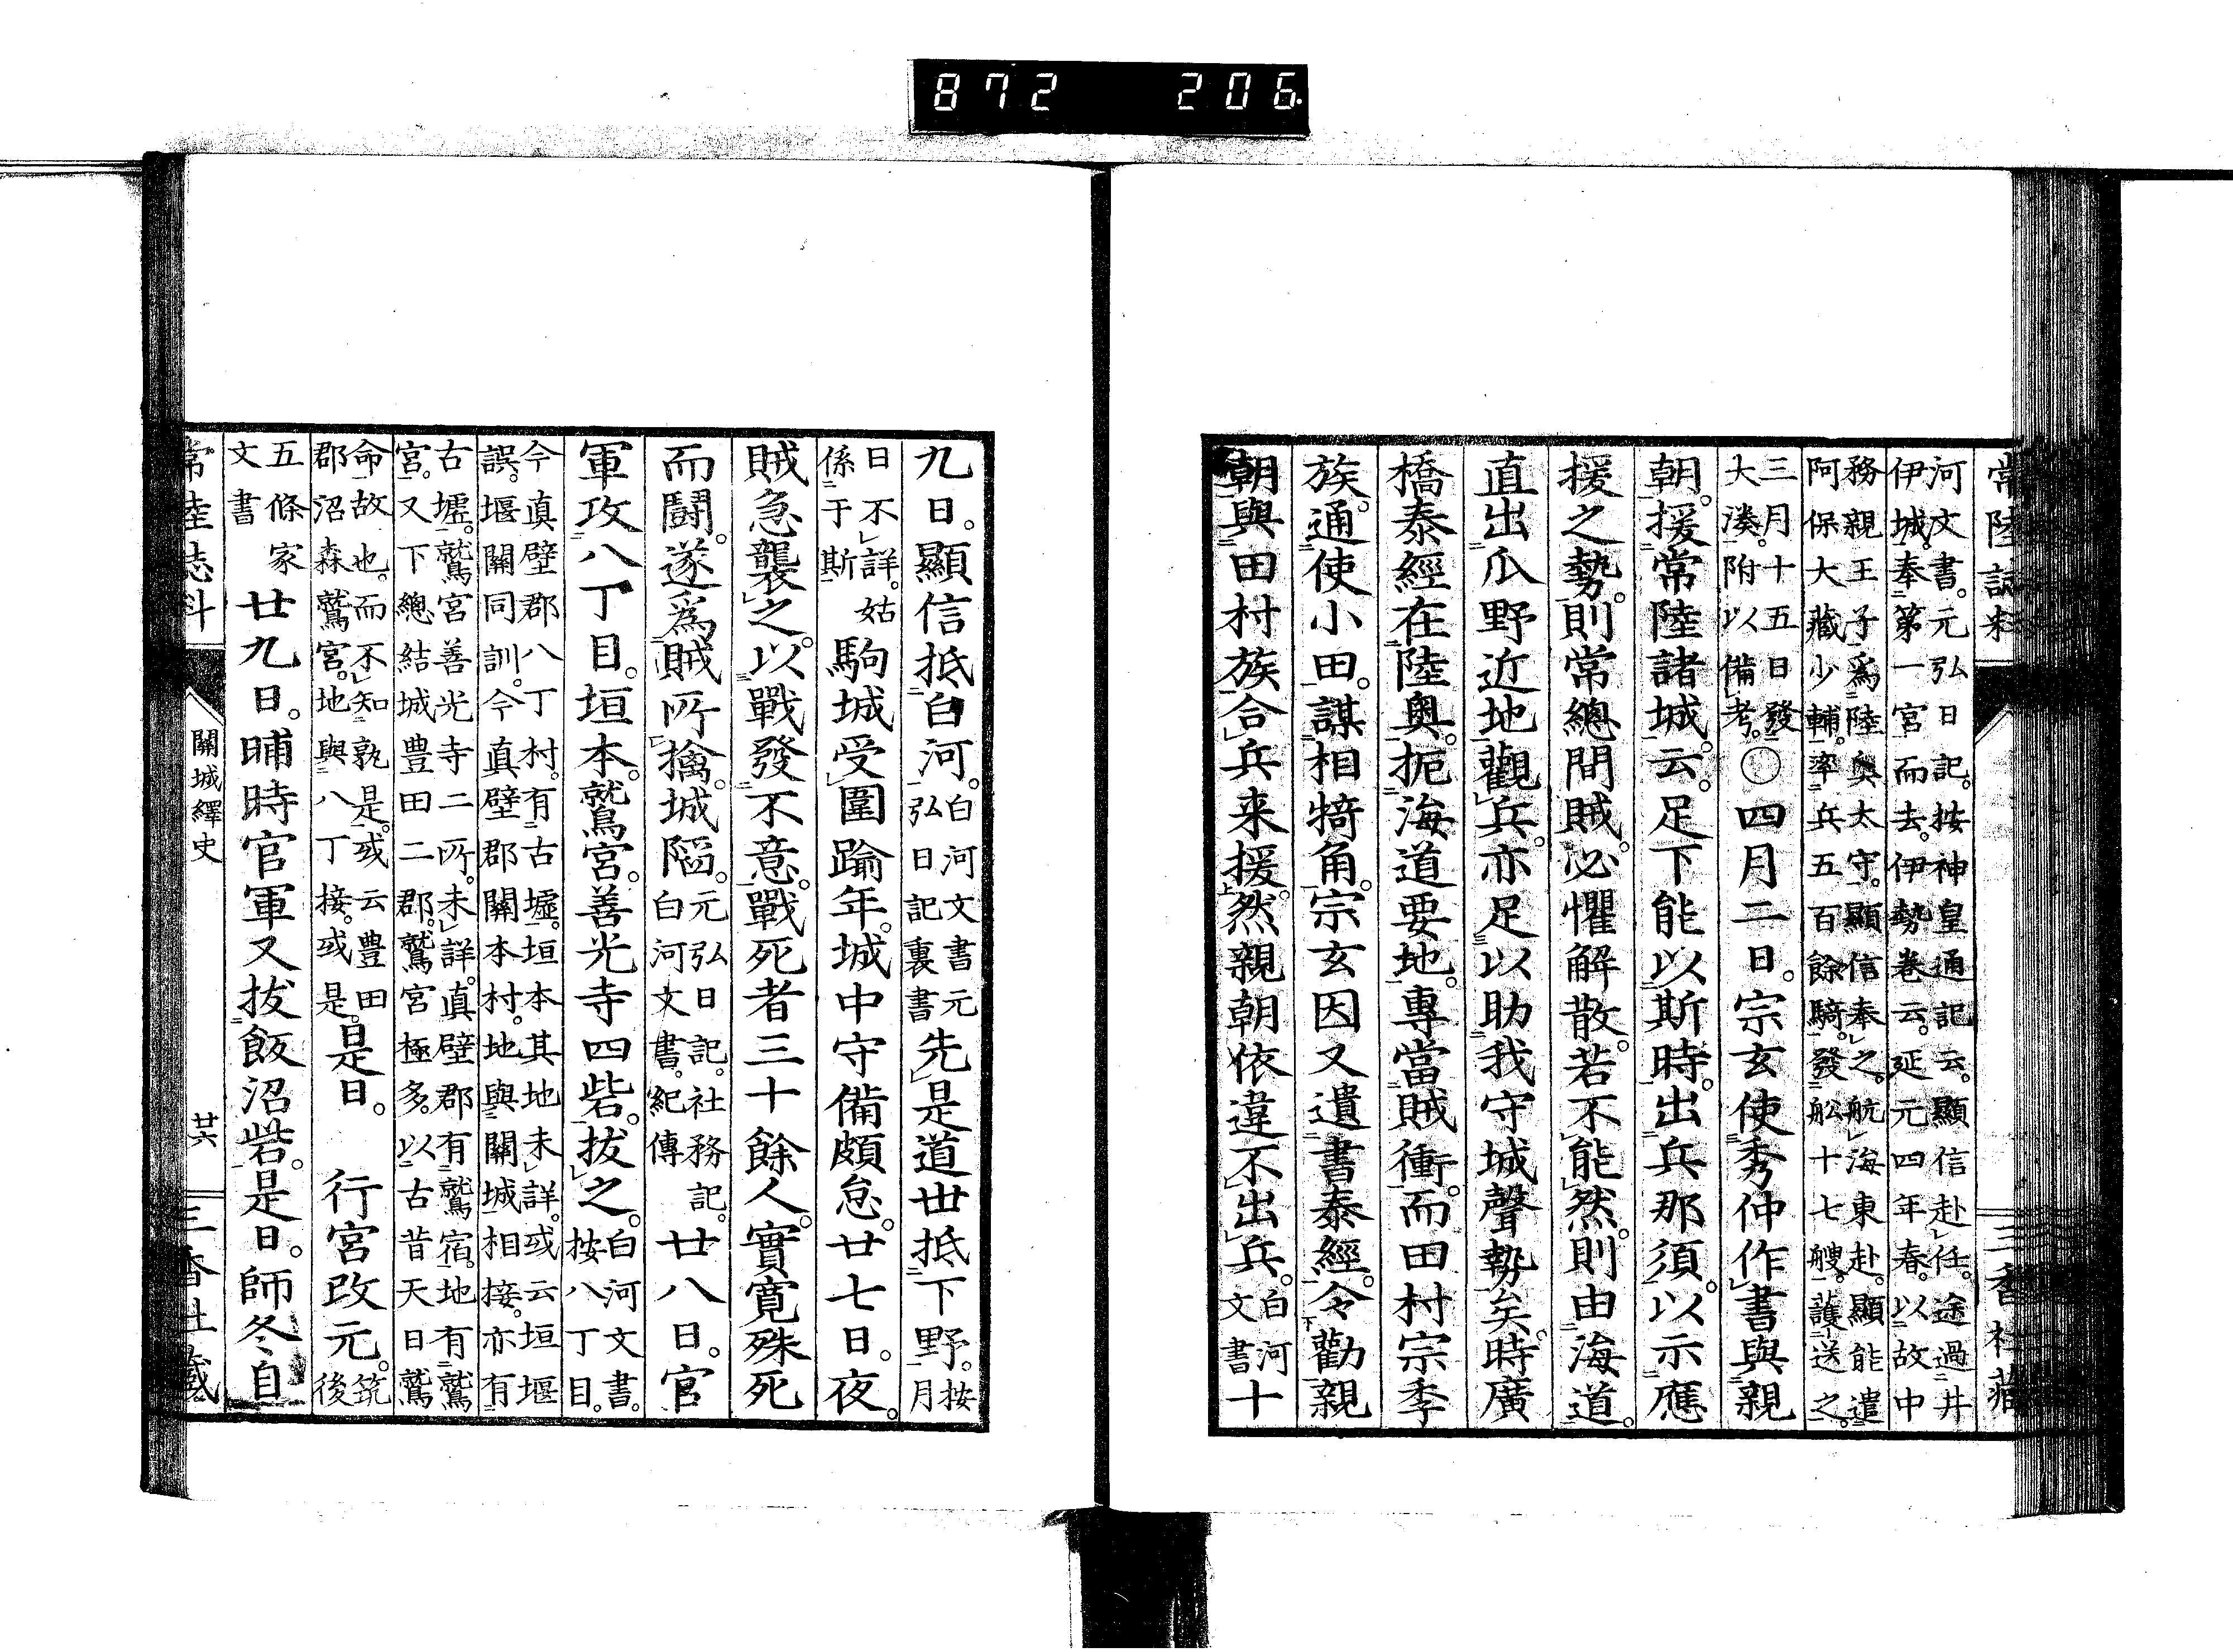 872 206
常陸誌料
三香社藏
河文書。元弘日記。按神皇通記云。顯信赴任。途過井
伊城。奉第一宮而去。伊勢巻云。延元四年春。以故中
務親王子爲陸奥太守。顯信奉之。航海東赴。顯能遣
阿保大藏少輔。率兵五百餘騎。發舩十七艘。護送之。
三月十五日發
大湊。附以備考。
〇四月二日。宗玄使秀仲作書與親
朝。援常陸諸城。云。足下能以斯時。出兵那須。以示應
援之勢。則常總間賊。必懼解散。若不能然。則由海道。
直出瓜野近地觀兵。亦足以助我守城聲勢矣。時廣
橋泰經在陸奥。扼海道要地。專當賊衝。而田村宗季
族。通使小田。謀相犄角。宗玄因又遺書泰經。令勸親
朝與田村族合兵来援。然親朝依違不出兵。
白河
文書
十
九日。顯信抵白河。
白河文書元
弘日記裏書
先是道世抵下野。
按月
日不詳。姑
係于斯
駒城受圍踰年。城中守備頗怠。廿七日。夜。
賊急襲之。以戰發不意。戰死者三十餘人。實寛殊死
而鬪。遂爲賊所擒。城陷。
元弘日記。社務記。
白河文書。紀傳
廿八日。官
軍攻八丁目。垣本。鷲宮。善光寺四砦。拔之。
白河文書。
按八丁目。
今真壁郡八丁村。有古墟。垣本其地未詳。或云垣堰
誤。堰關同訓。今真壁郡關本村。地與關城相接。亦有
古墟。鷲宮善光寺二所。未詳。真壁郡有鷲宿。地有鷲
宮。又下總結城豊田二郡。鷲宮極多。以古昔天日鷲
命故也。而不知孰是。或云豊田
郡沼森鷲宮。地與八丁接。或是。
是日。行宮改元。
筑後
五條家
文書
廿九日。晡時官軍又拔飯沼砦。是日。師冬自
常陸志料
關城繹史
廿六
三香社藏